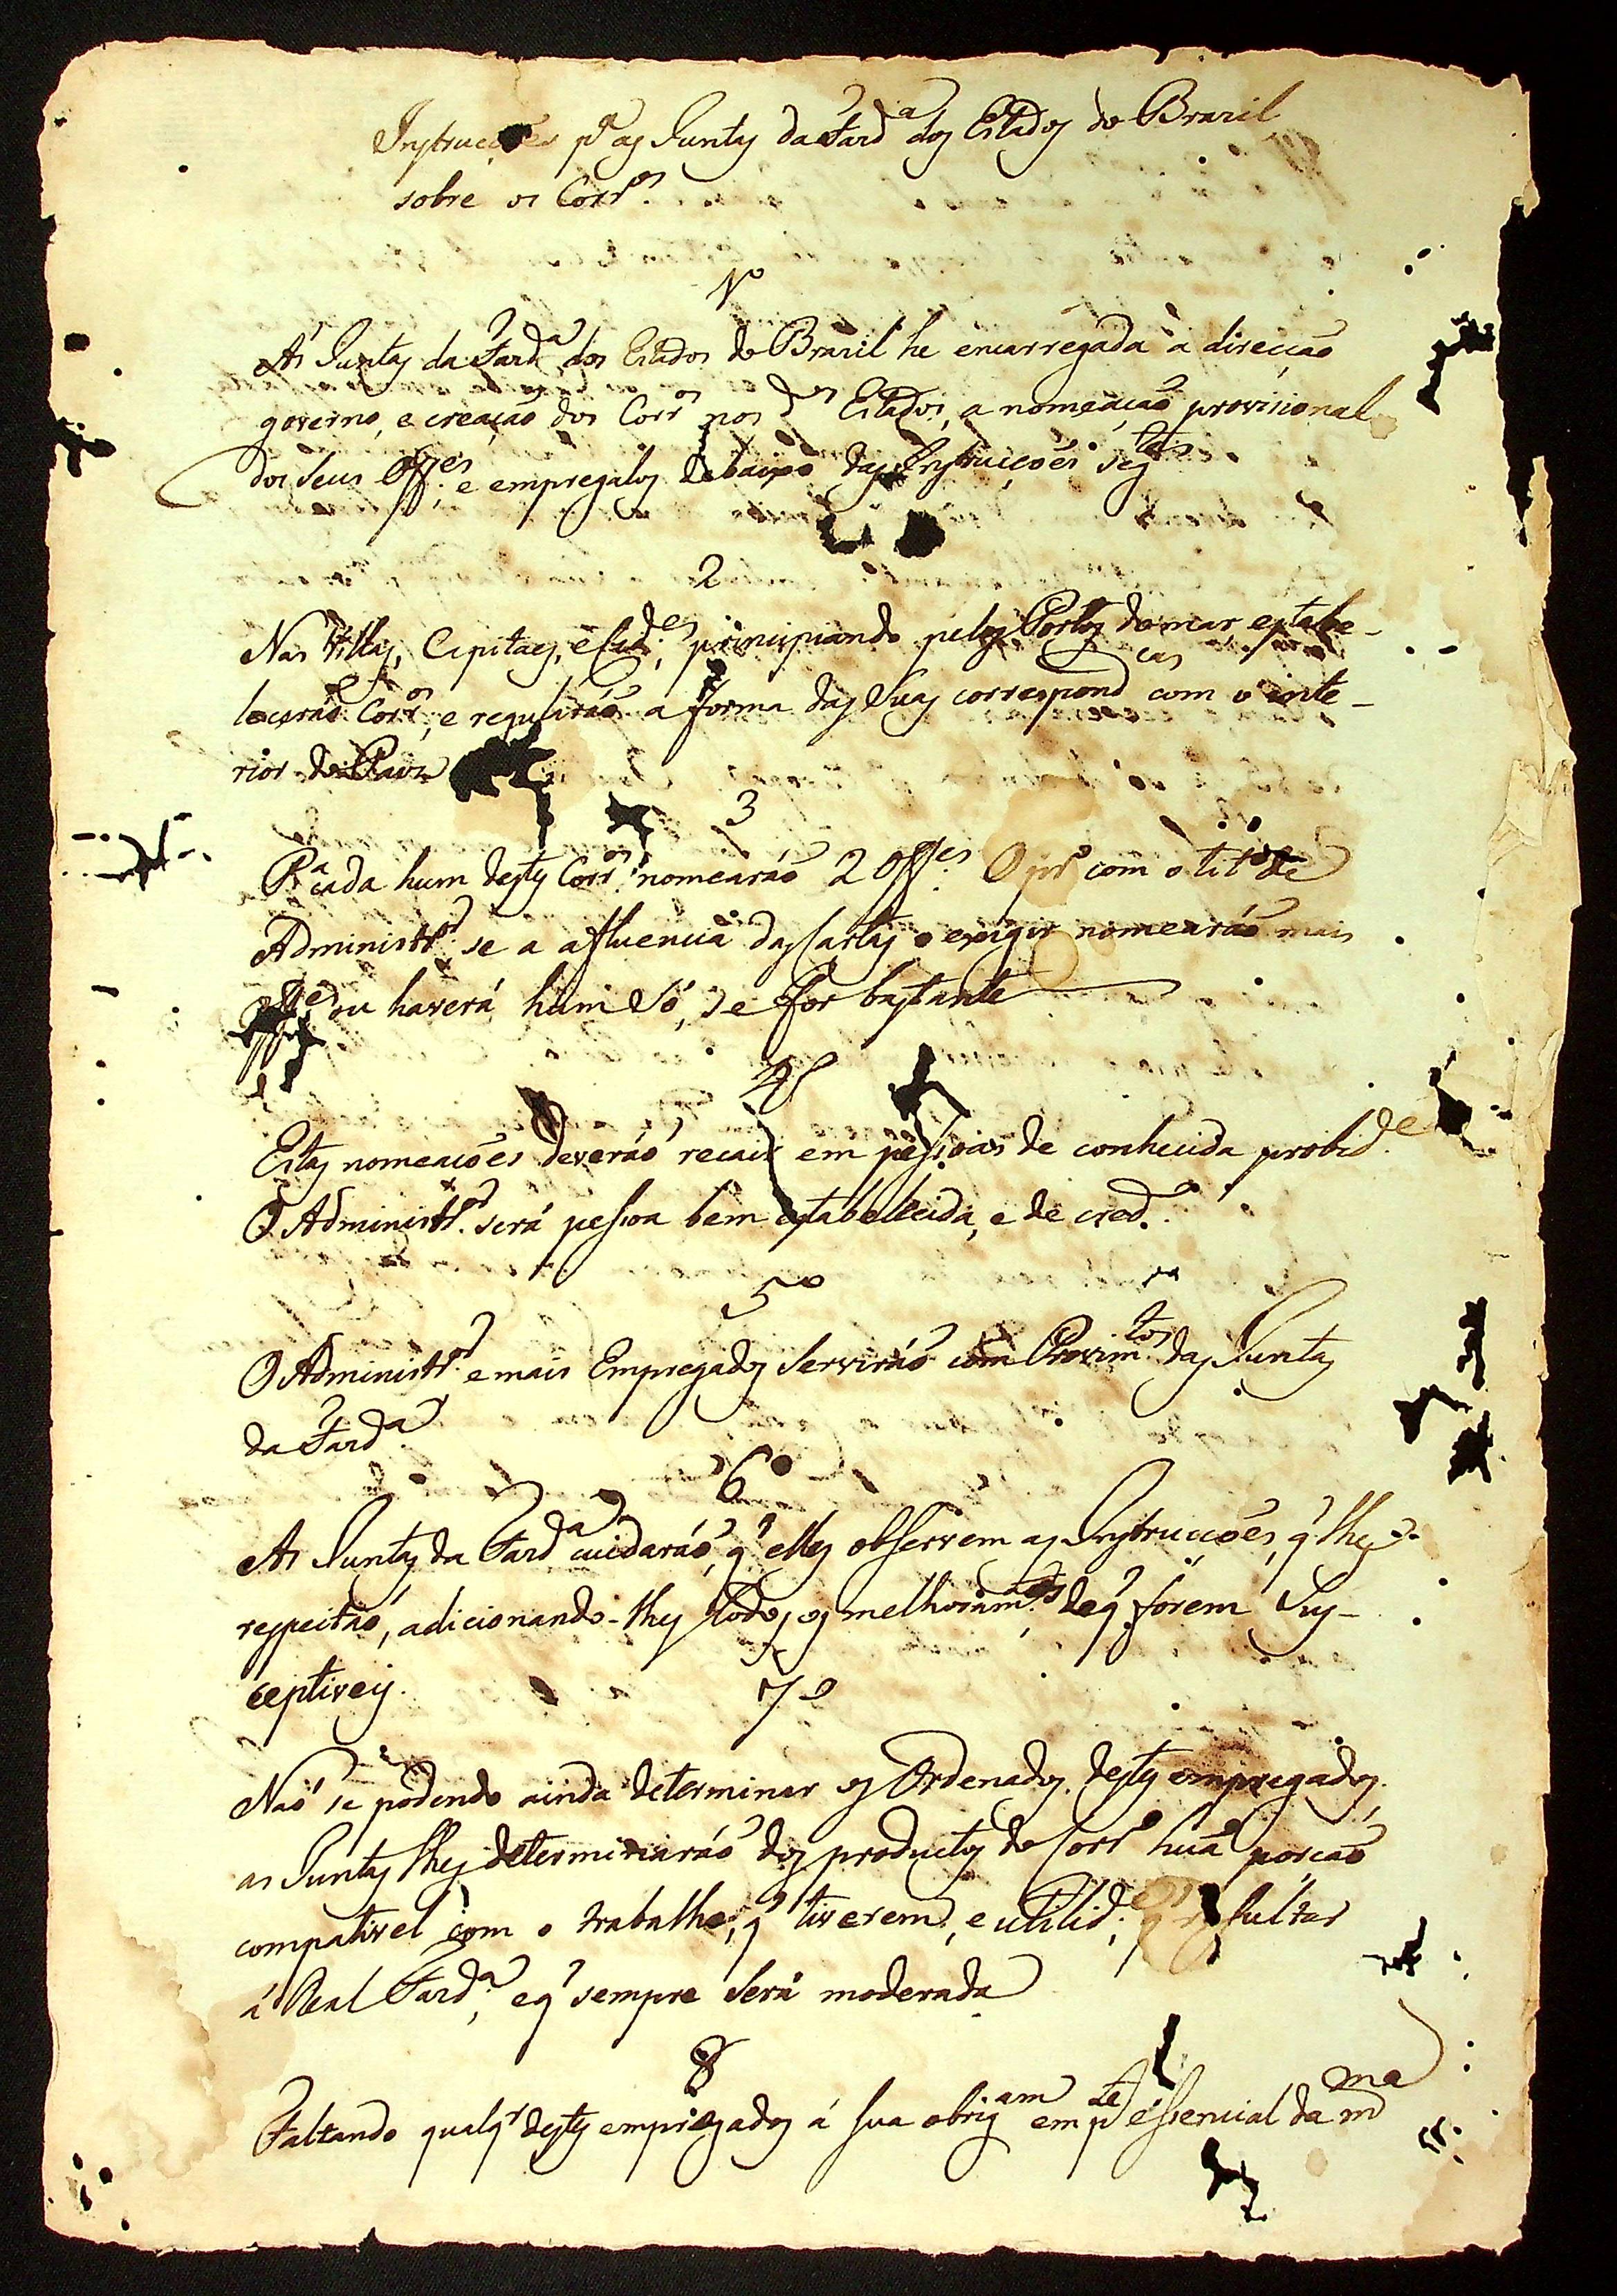 Instrucções pª as Juntas da Fazdª dos Estados do Brazil
sobre os Corros.
1º
Ás Juntas da Fazdª dos Estados do Brazil he encarregada a direcçaõ
governo, e creaçaõ dos Corros nos dos Estados, a nomeaçaõ provisional
dos seus Offes; e empregados debaixo das Instrucções segtes
2
Nas Villas, Capitaes, e Cides; principiando pelos Portos do mar, estabe-
leceráõ Corros, e regularáõ a forma das suas correspondcas com o inte-
rior do Paiz
3
Pª cada hum destes Corros nomearáõ 2 Offes. O prº com o titº de
Administror. se a afluencia das Cartas o exigir nomearáõ mais
Offes ou haverá hum só, se for bastante
4º
Estas nomeações deveráõ recair em pessoas de conhecida probide.
O Administror. será pessoa bem estabellecida, e de credº.
5º
O Administror. e mais Empregados serviráõ com Provimtos das Juntas
da Fazdª
6º
As Juntas da Fazdª cuidaráõ, q' elles observem as Instrucções, q' lhes
respeitaõ, adicionando-lhes todos os melhoramtos, de q' forem sus-
ceptiveis.
7º
Naõ se podendo ainda determinar os Ordenados destes empregados,
as Juntas lhes determinaráõ dos productos do Corrº huã porçaõ
compativel com o trabalho, q' tiverem, e utilide, q' resultar
á Real Fazdª; e q' sempre será moderada
8
Faltando qualqr destes empregados á sua obrigam em pte essencial da mma